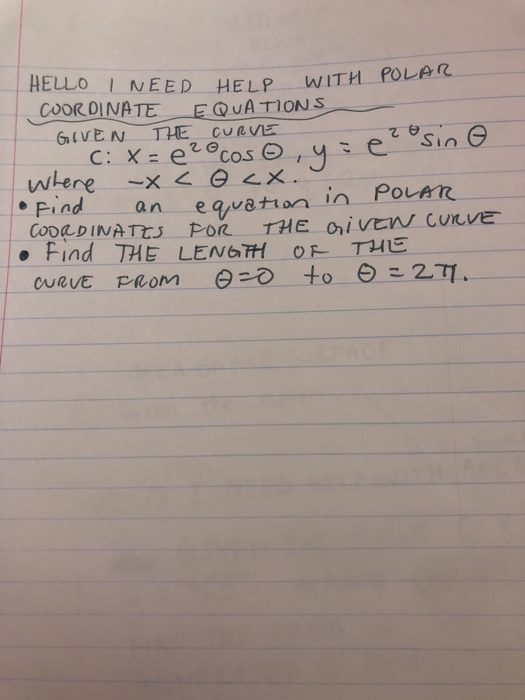 HELLO I NEED HELP WITH POLAR
COORDINATE EQUATIONS
GIVEN THE CURVE
C: x = e^{2θ}cos θ, y = e^{2θ}sin θ
where -x < θ < x.
• Find an equation in POLAR
COORDINATES FOR THE GIVEN CURVE
• Find THE LENGTH OF THE
CURVE FROM θ=0 to θ = 2π.